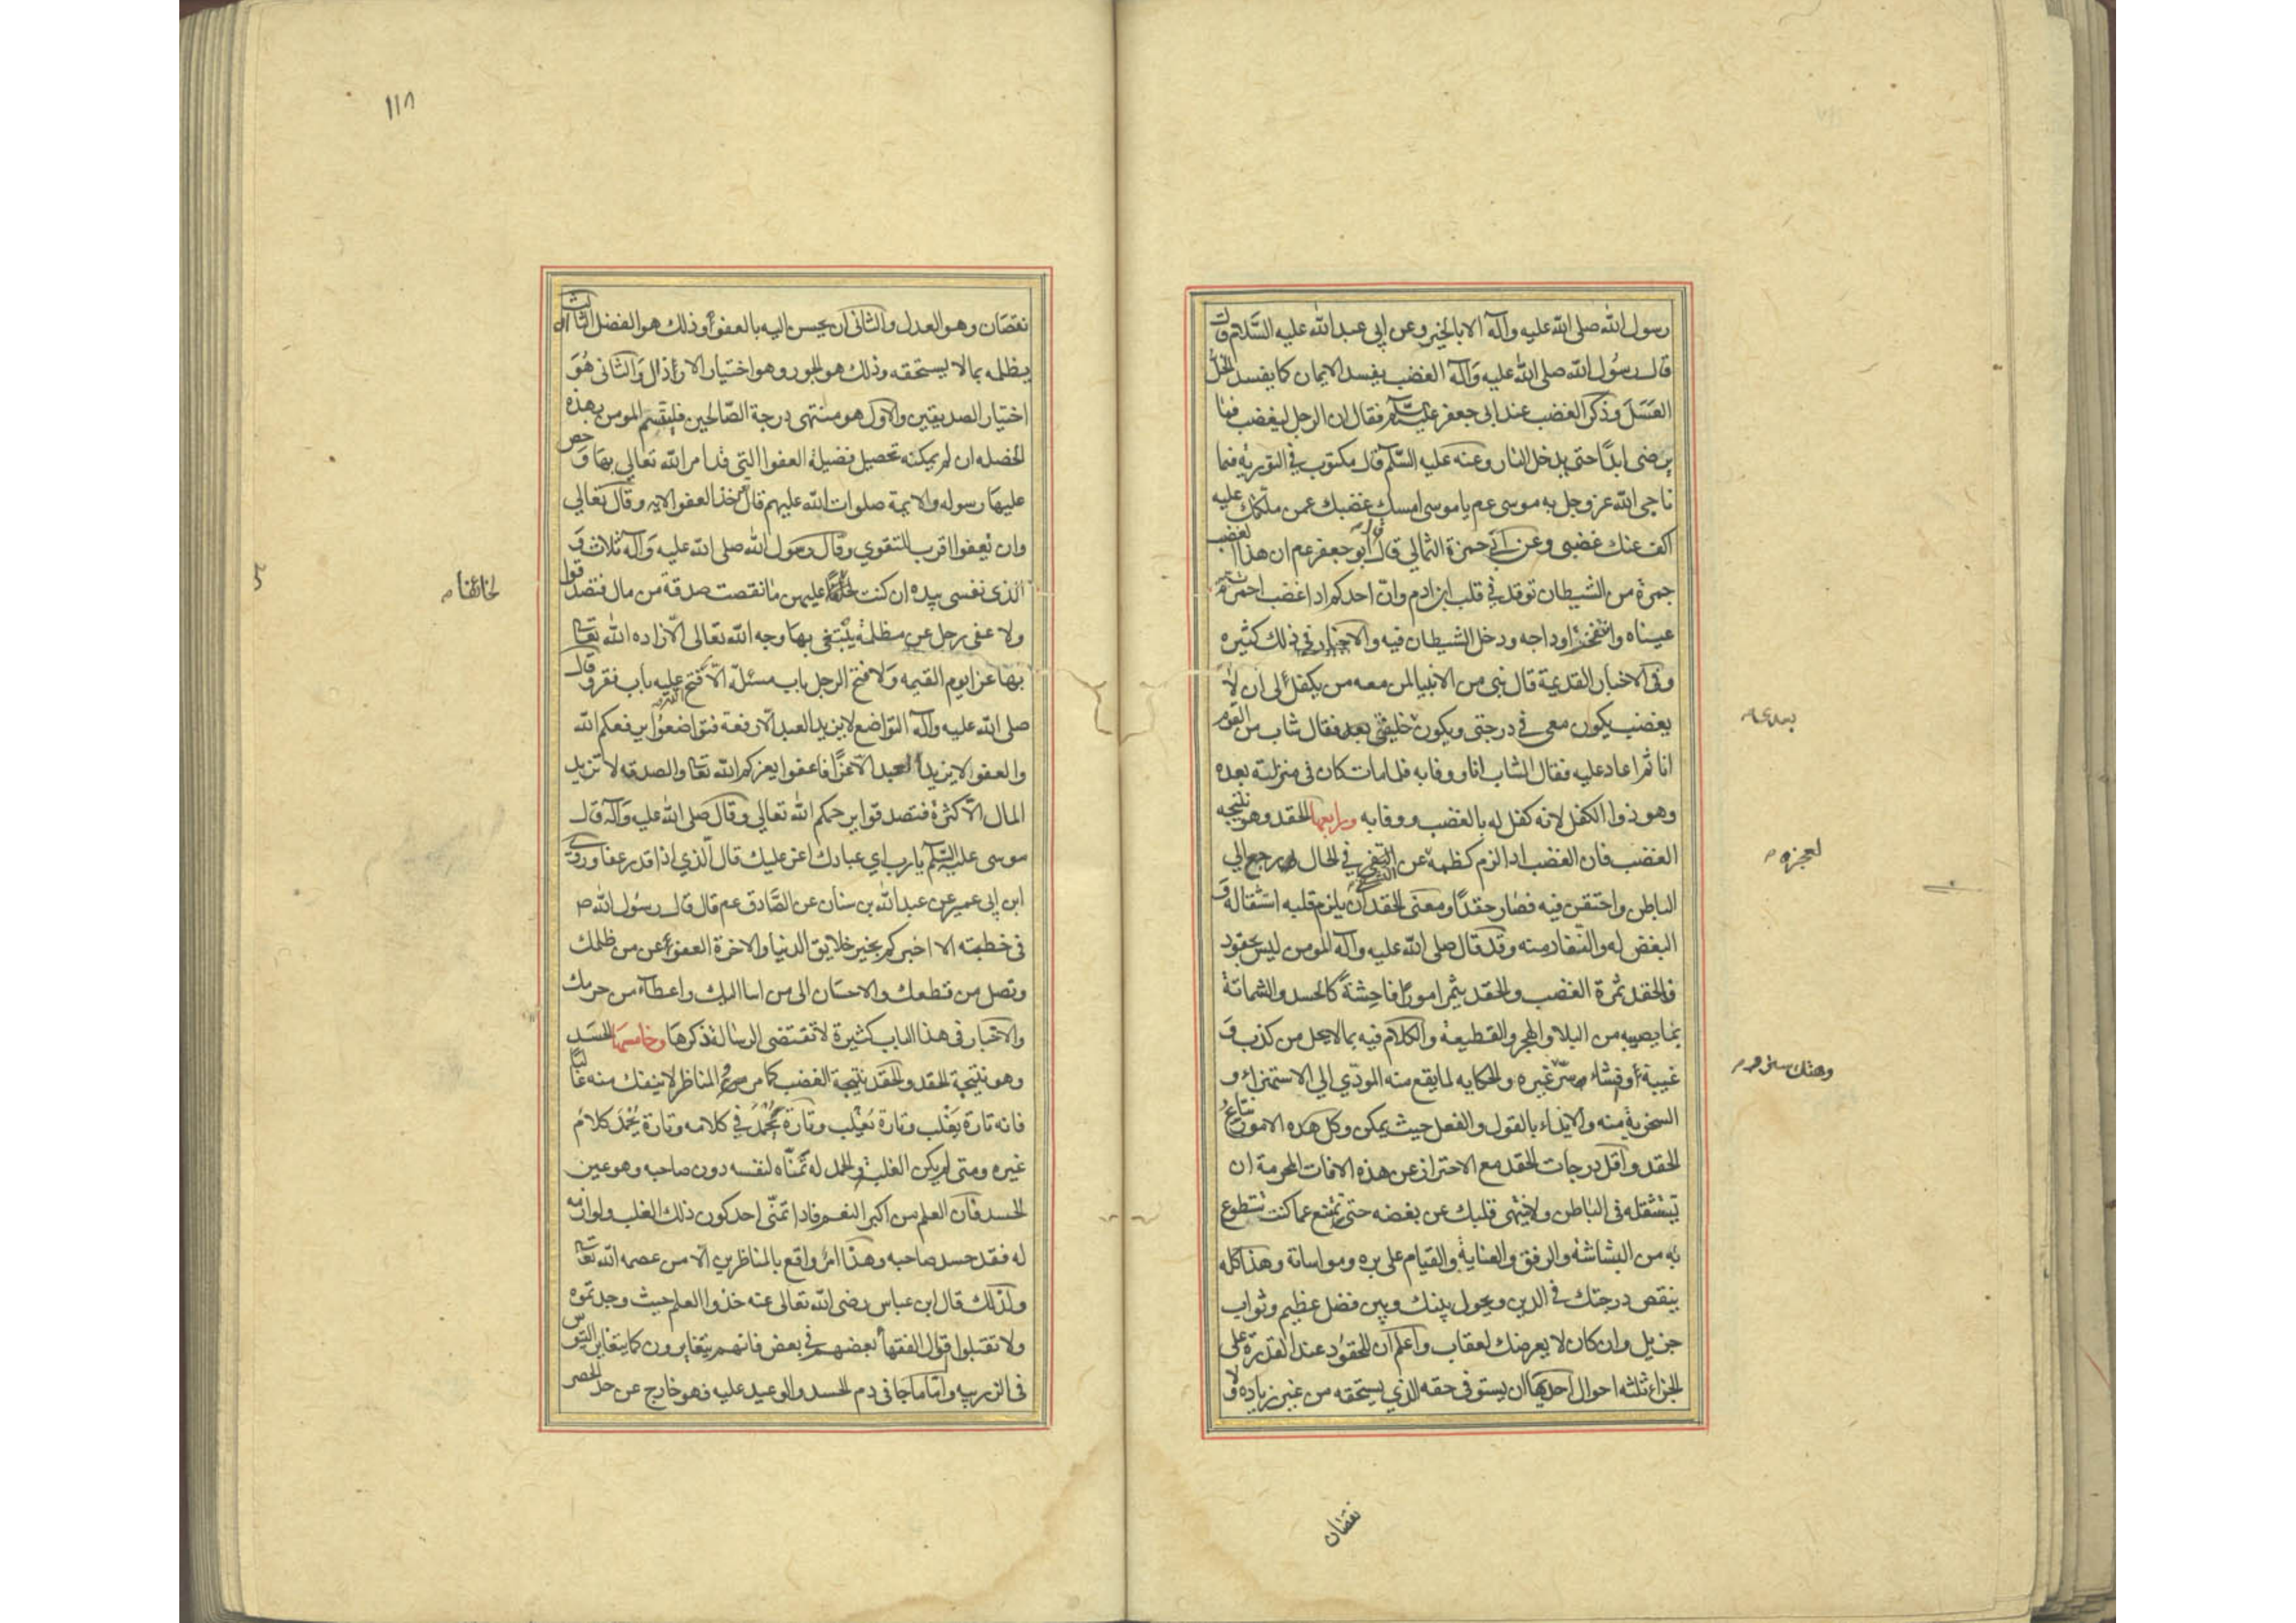 رسول الله صلى الله عليه وآله الا بالخير وعن ابي عبد الله عليه السلام قال
قال رسول الله صلى الله عليه وآله الغضب يفسد الايمان كما يفسد الخل
العسل وذكر الغضب عند ابى جعفر عليه السلام فقال ان الرجل ليغضب فما
يرضى ابدًا حتى يدخل النار وعنه عليه السلام قال مكتوب في التورية فيما
ناجى الله عز وجل به موسى عم يا موسى امسك غضبك عمن ملكتك عليه
اكف عنك غضبى وعن ابي حمزة الثمالي قال قال ابو جعفر عم ان هذا الغضب
جمرة من الشيطان توقد في قلب ابن ادم وان احدكم اذا غضب احمرت
عيناه وانتفخت اوداجه ودخل الشيطان فيه والاخبار في ذلك كثيره
وفى الاخبار القديمة قال نبى من الانبيا لمن معه من يكفل لى ان لا
يغضب يكون معى فى درجتى ويكون خليفتى بعدى فقال شاب من القوم
انا ثم اعاد عليه فقال الشاب انا ووفا به فلما مات كان فى منزلته بعده
وهو ذوا الكفل لانه كفل له بالغضب ووفا به ورابعها الحقد وهو نتيجه
الغضب فان الغضب اذا لزم كظمه عن التشفي في الحال رجع الى
الباطن واحتقن فيه فصار حقدًا ومعنى الحقد ان يلزم قلبه استثقاله و
البغض له والنفار منه وقد قال صلى الله عليه وآله المومن ليس بحقود
فالحقد ثمرة الغضب والحقد يثمر امورًا فاحشة كالحسد والشماتة
بما يصيبه من البلاء والهجر والقطيعة والكلام فيه بما لا يحل من كذب و
غيبة وافشاء سر غيره والحكايه لما يقع منه المودي الى الاستهزاء و
السخرية منه والايذاء بالقول والفعل حيث يمكن وكل هذه الامور نتايج
الحقد واقل درجات الحقد مع الاحتراز عن هذه الافات المحرمة ان
تستثقله فى الباطن ولا ينتهى قلبك عن بغضه حتى تمتنع عما كنت تتطوع
به من البشاشة والرفق والعناية والقيام على بره ومواساته وهذا كله
ينقص درجتك فى الدين ويحول بينك وبين فضل عظيم وثواب
جزيل وان كان لا يعرضك لعقاب واعلم ان للحقود عند القدرة على
الجزاء ثلثه احوال احديها ان يستوفى حقه الذي يستحقه من غير زياده ولا
بعدى
لعجزه
وهتك ستر
نقصان
١١٨
نقصان وهو العدل والثانى ان يحسن اليه بالعفو وذلك هو الفضل الثالث ان
يظلمه بما لا يستحقه وذلك هو الجور وهو اختيار الاراذل والثانى هو
اختيار الصديقين والاول هو منتهى درجة الصالحين فليتسم المومن بهذه
الخصله ان لم يمكنه تحصيل فضيلة العفو التى قد امر الله تعالى بها وحض
عليها رسوله والايمة صلوات الله عليهم قال خذ العفو الايه وقال تعالى
وان تعفوا اقرب للتقوي وقال رسول الله صلى الله عليه وآله ثلاث و
الذى نفسى بيده ان كنت عليهن ما نقصت صدقة من مال فتصدقوا
ولا عفى رجل عن مظلمة يبتغى بها وجه الله تعالى الا زاده الله تعالى
بها عزا يوم القيمه ولا فتح الرجل باب مسئلة الا فتح الله عليه باب فقر وقال
صلى الله عليه وآله التواضع لا يزيد العبد الا رفعة فتواضعوا يرفعكم الله
والعفو لا يزيد العبد الا عزًا فاعفوا يعزكم الله تعالى والصدقه لا تزيد
المال الا كثرة فتصدقوا يرحمكم الله تعالى وقال صلى الله عليه وآله قال
موسى عليه السلام يا رب اي عبادك اعز عليك قال الذي اذا قدر عفا وروى
ابن ابى عمير عن عبد الله بن سنان عن الصادق عم قال قال رسول الله ص
فى خطبته الا اخبركم بخير خلايق الدنيا والاخرة العفو عن من ظلمك
وتصل من قطعك والاحسان الى من اسا اليك واعطاء من حرمك
والاخبار فى هذا الباب كثيرة لا تقتضى الرسالة ذكرها وخامسها الحسد
وهو نتيجة الحقد والحقد نتيجة الغضب كما مر والمناظر لا ينفك منه غالبًا
فانه تارة يَغلب وتارة يُغلب وتارة يحمد في كلامه وتارة يحمد كلام
غيره ومتى لم يكن الغلب والحمد له تمناه لنفسه دون صاحبه وهو عين
الحسد فان العلم من اكبر النعم فاذا تمنى احد كون ذلك الغلب ولوازمه
له فقد حسد صاحبه وهذا امر واقع بالمناظرين الا من عصمه الله تعالى
ولذلك قال ابن عباس رضى الله تعالى عنه خذوا العلم حيث وجدتموه
ولا تقبلوا اقوال الفقهاء بعضهم في بعض فانهم يتغايرون كما يتغاير التيوس
فى الزريبه واما ما جا فى ذم الحسد والوعيد عليه فهو خارج عن حد الحصر
لحالفا